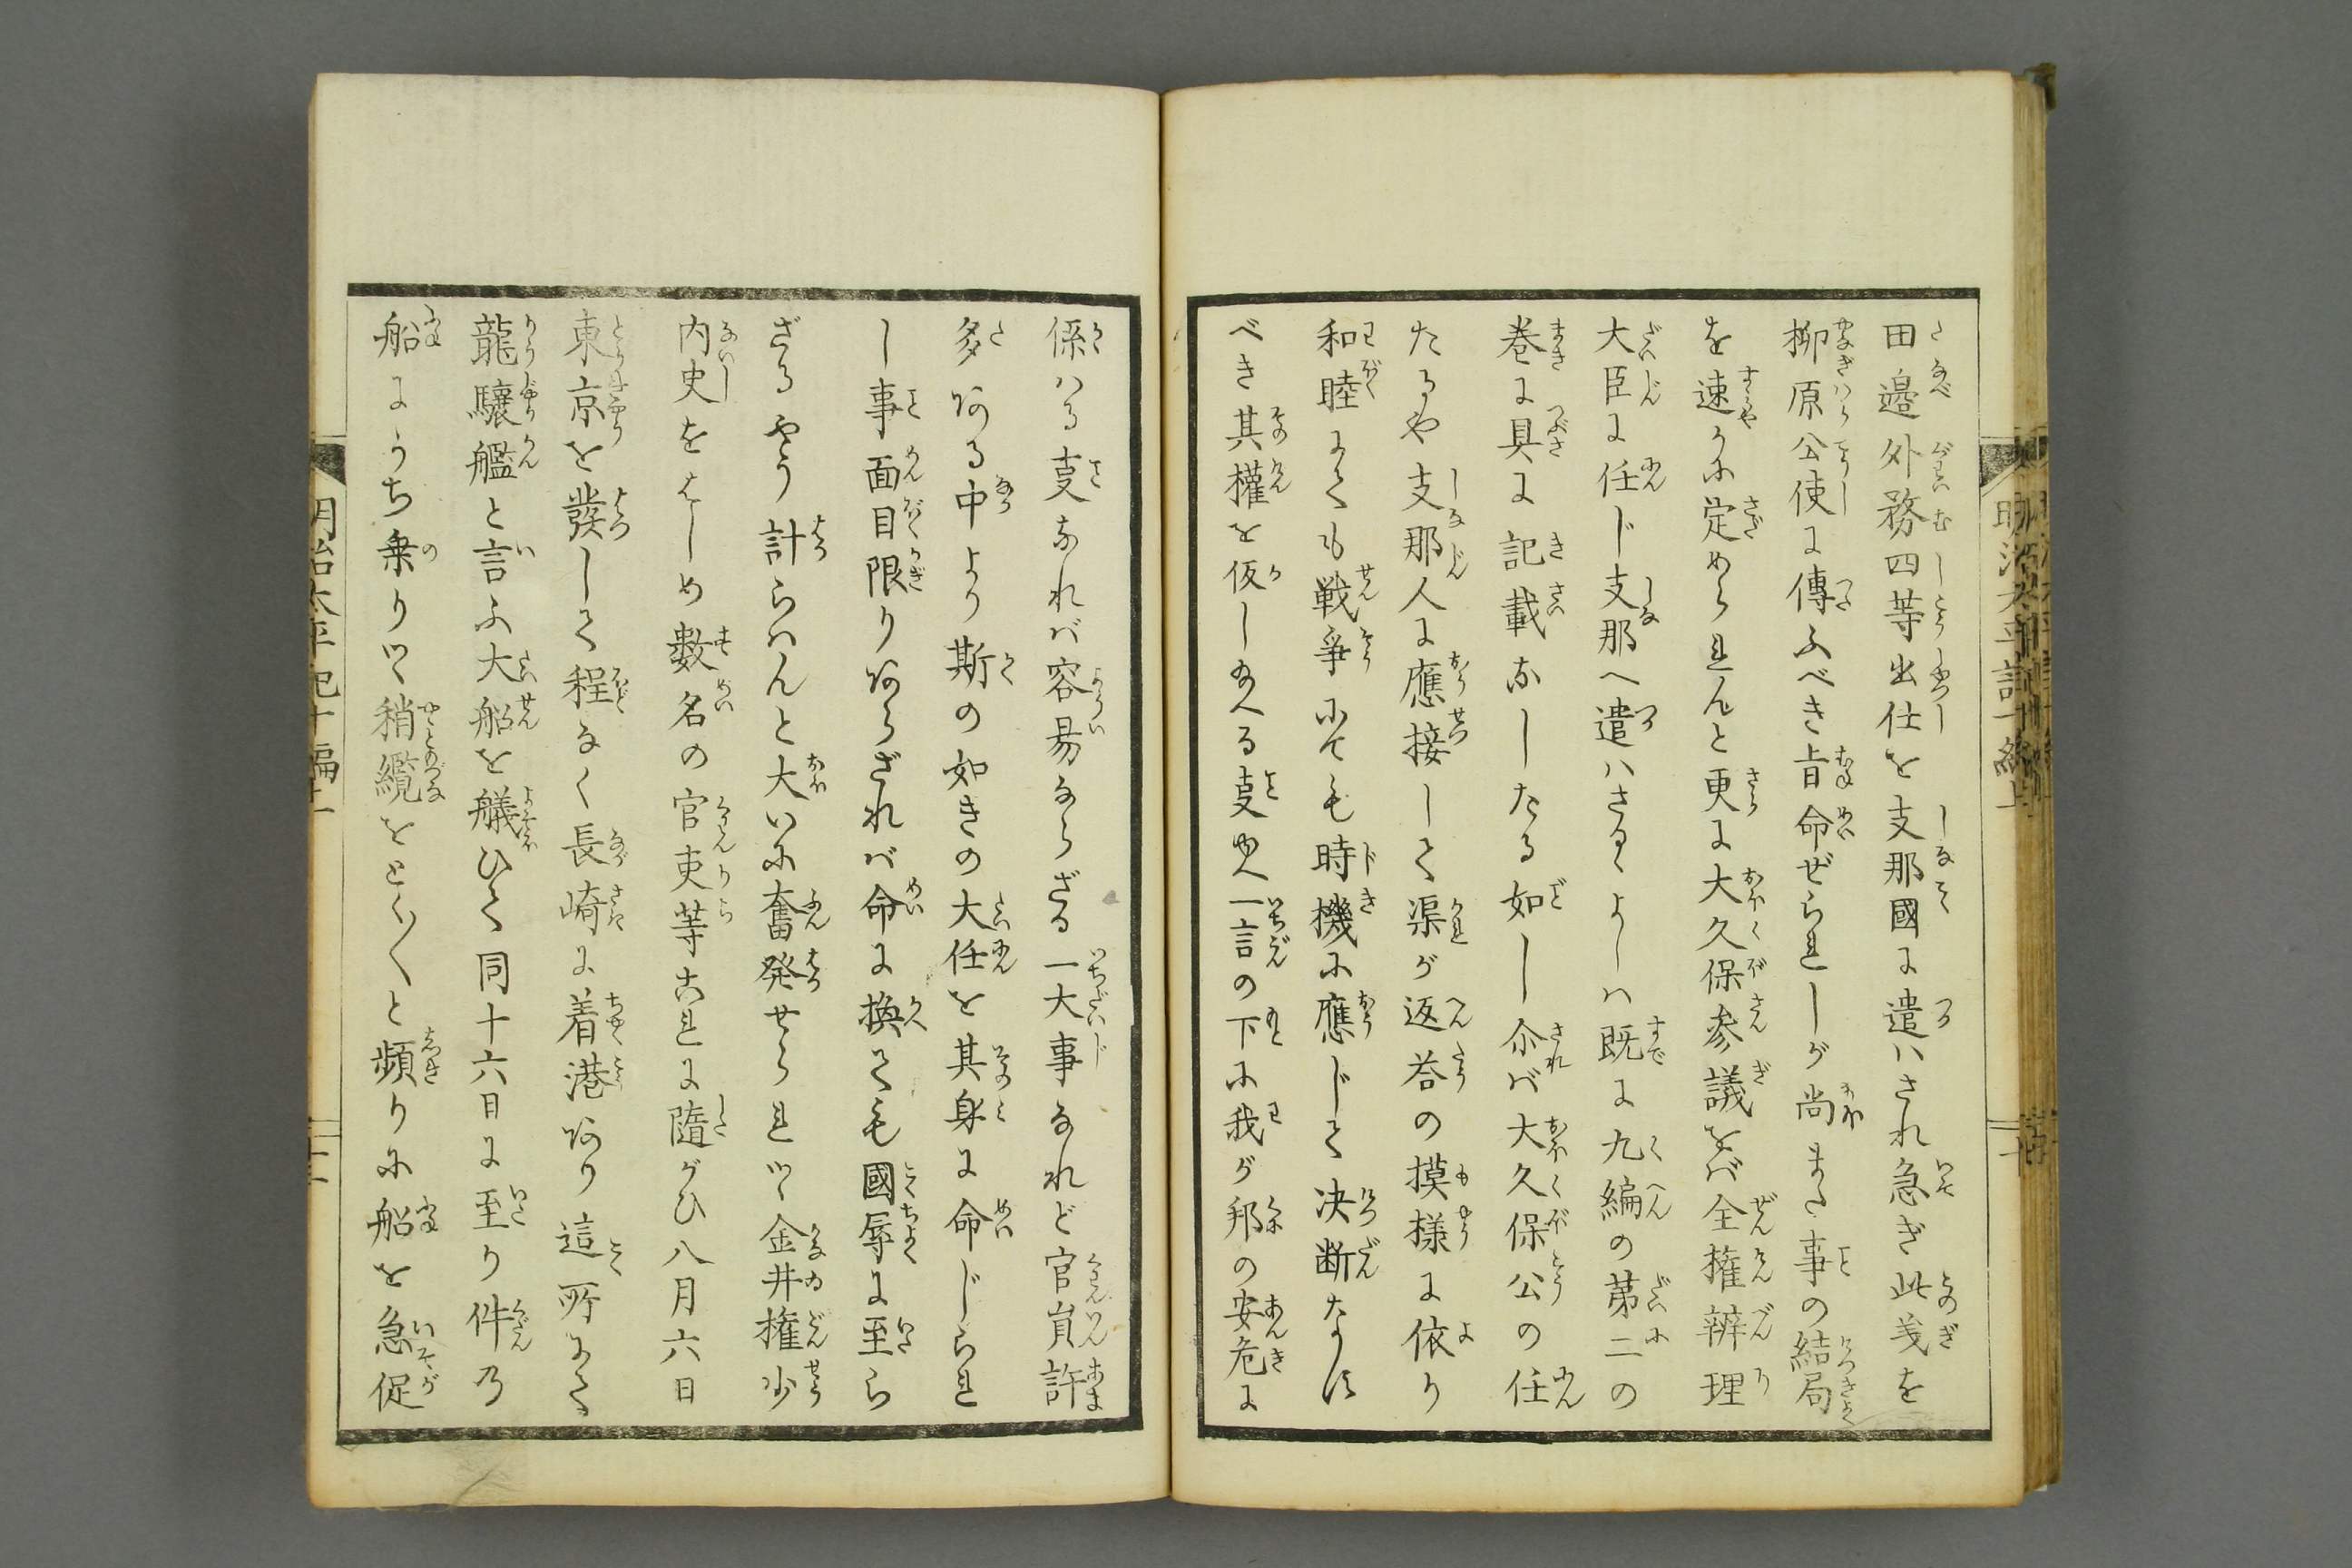 田邉外務四等出仕を支那國に遣ハされ急ぎ此義を
柳原公使に傳ふべき旨命ぜられしが尚また事の結局
を速かに定められんと更に大久保参議をバ全権辨理
大臣に任じ支那へ遣ハさるゝよしハ既に九編の第二の
巻に具に記載なしたる如し尒バ大久保公の任
たるや支那人に應接して渠が返荅の摸様に依り
和睦にても戦爭にても時機に應じて决断なす
べき其權を仮し給へる事ゆへ一言の下に我が邦の安危に
係ハる事なれバ容易ならざる一大事なれど官員許
多ある中より斯の如きの大任を其身に命じられ
し事面目限りあらざれバ命に換ても國辱に至ら
ざるやう計らハんと大いに奮発せられつゝ金井権少
内史をはじめ数名の官吏等これに隨がひ八月六日
東京を發して程なく長崎に着港あり這所にて
龍驤艦と言ふ大船を艤ひて同十六日に至り件乃
船にうち乗りつゝ稍纜をとく〳〵と頻りに船を急促
明治太平記十編上